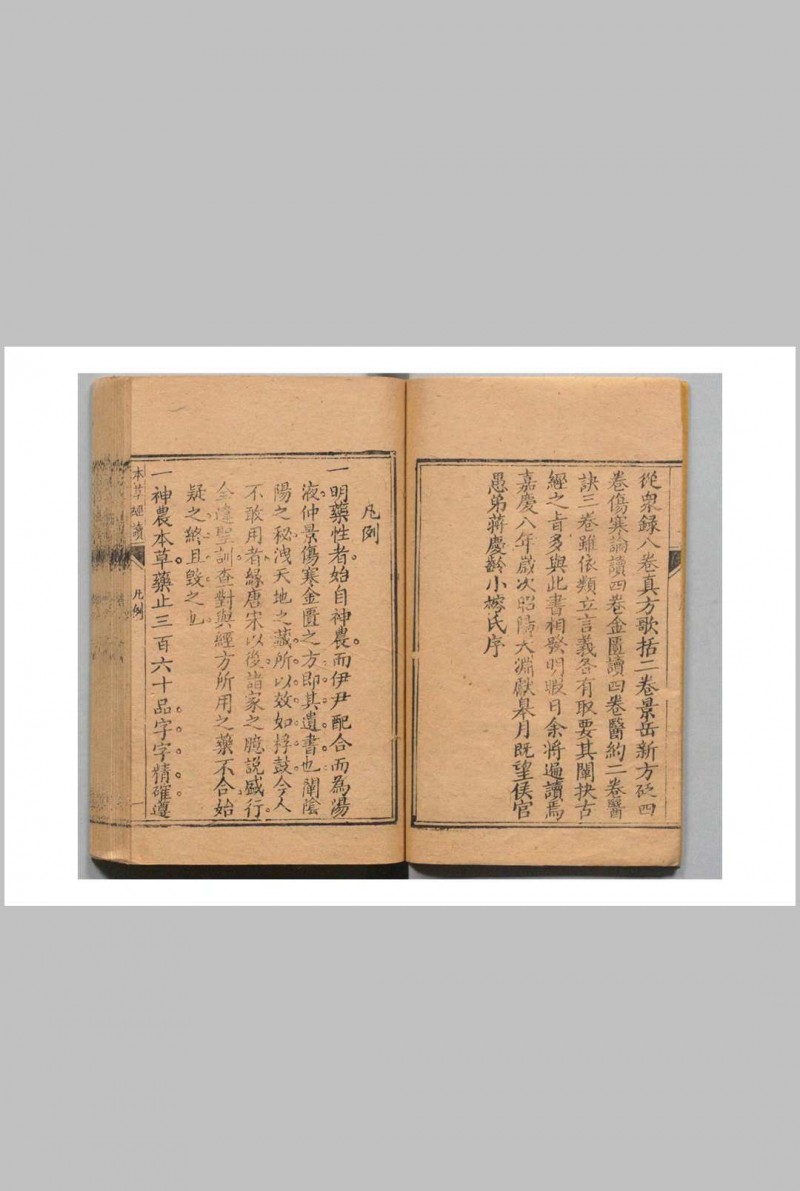 從衆録八卷真方歌括二卷景岳新方砭四
卷傷寒論讀四卷金匱讀四卷醫約二卷醫
訣三卷雖依類立言義各有取要其闡抉古
經之旨多與此書相發明暇日余將遍讀焉
嘉慶八年歲次昭陽大淵獻皋月既望侯官
愚弟蔣慶齡小榕氏序
凡例
一明藥性者。始自神農。而伊尹配合而為湯
液。仲景傷寒金匱之方。即其遺書也。闡陰
陽之秘。洩天地之藏。所以效如桴鼓。今人
不敢用者。緣唐宋以後諸家之臆說盛行。
全違聖訓。查對與經方所用之藥不合。始
疑之。終且毀之也。
一神農本草。藥止三百六十品。字字精確。遵
本草經讀
凡例
一